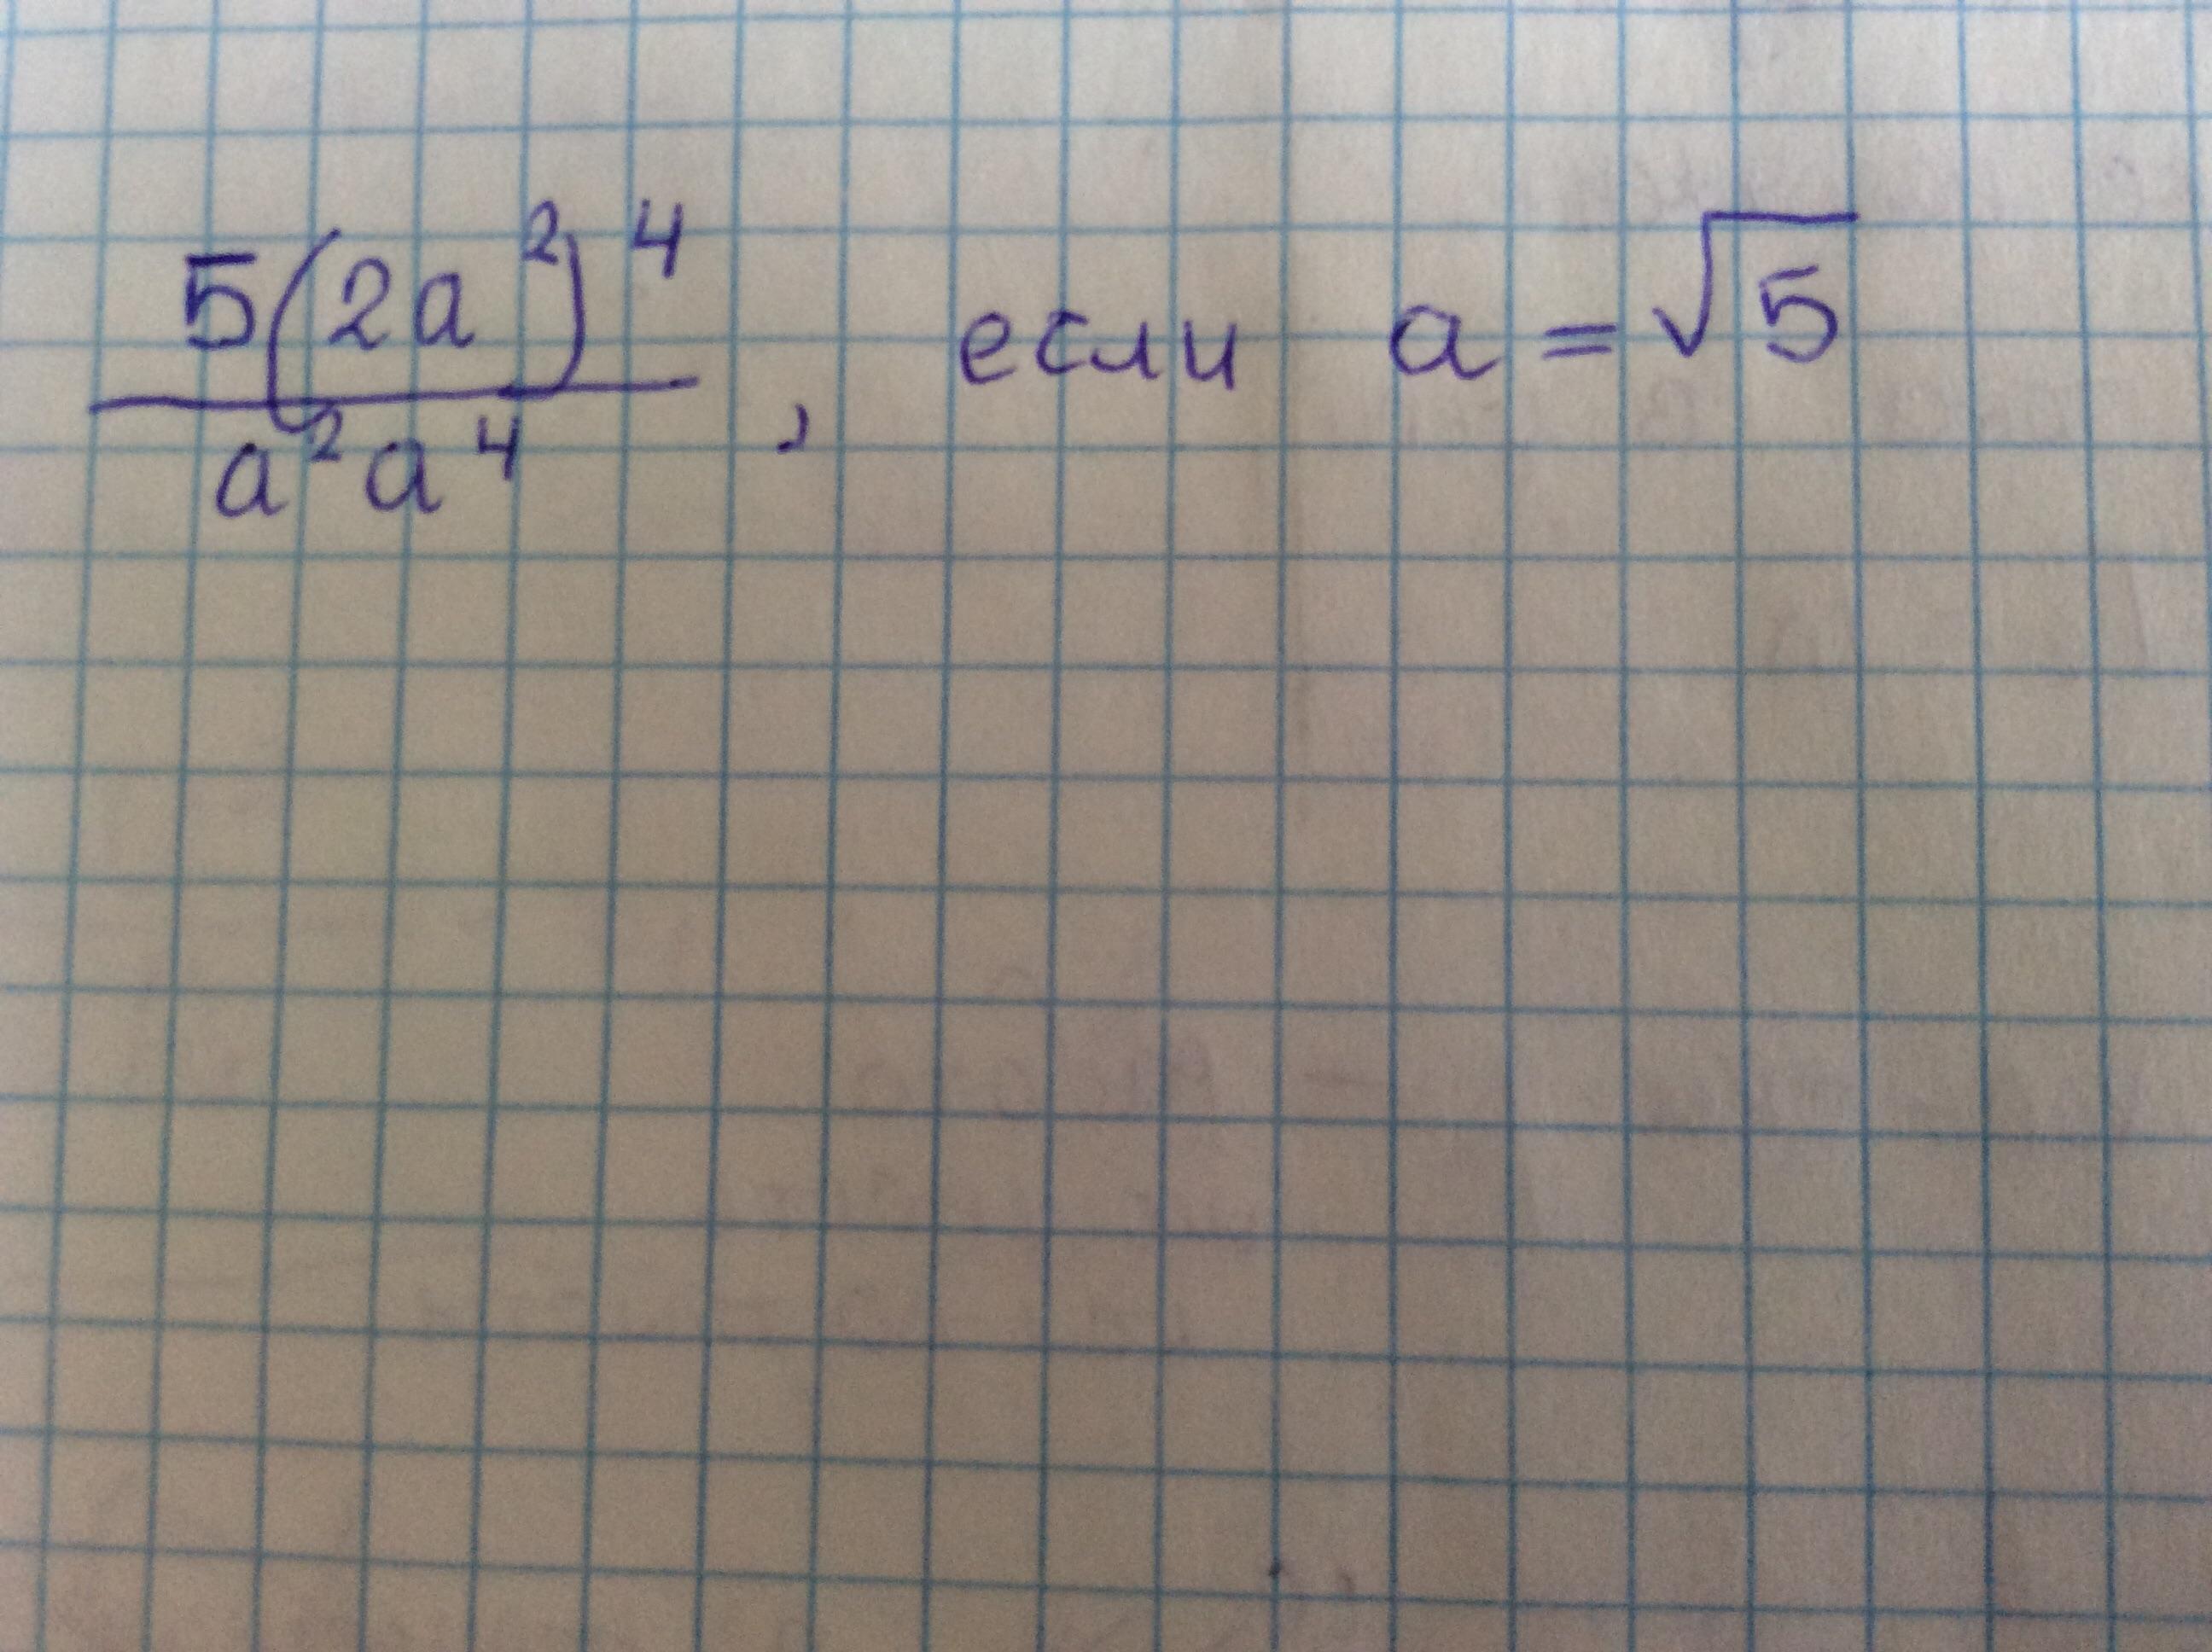 5(2a²)⁴ / a²a⁴ , если a = √5